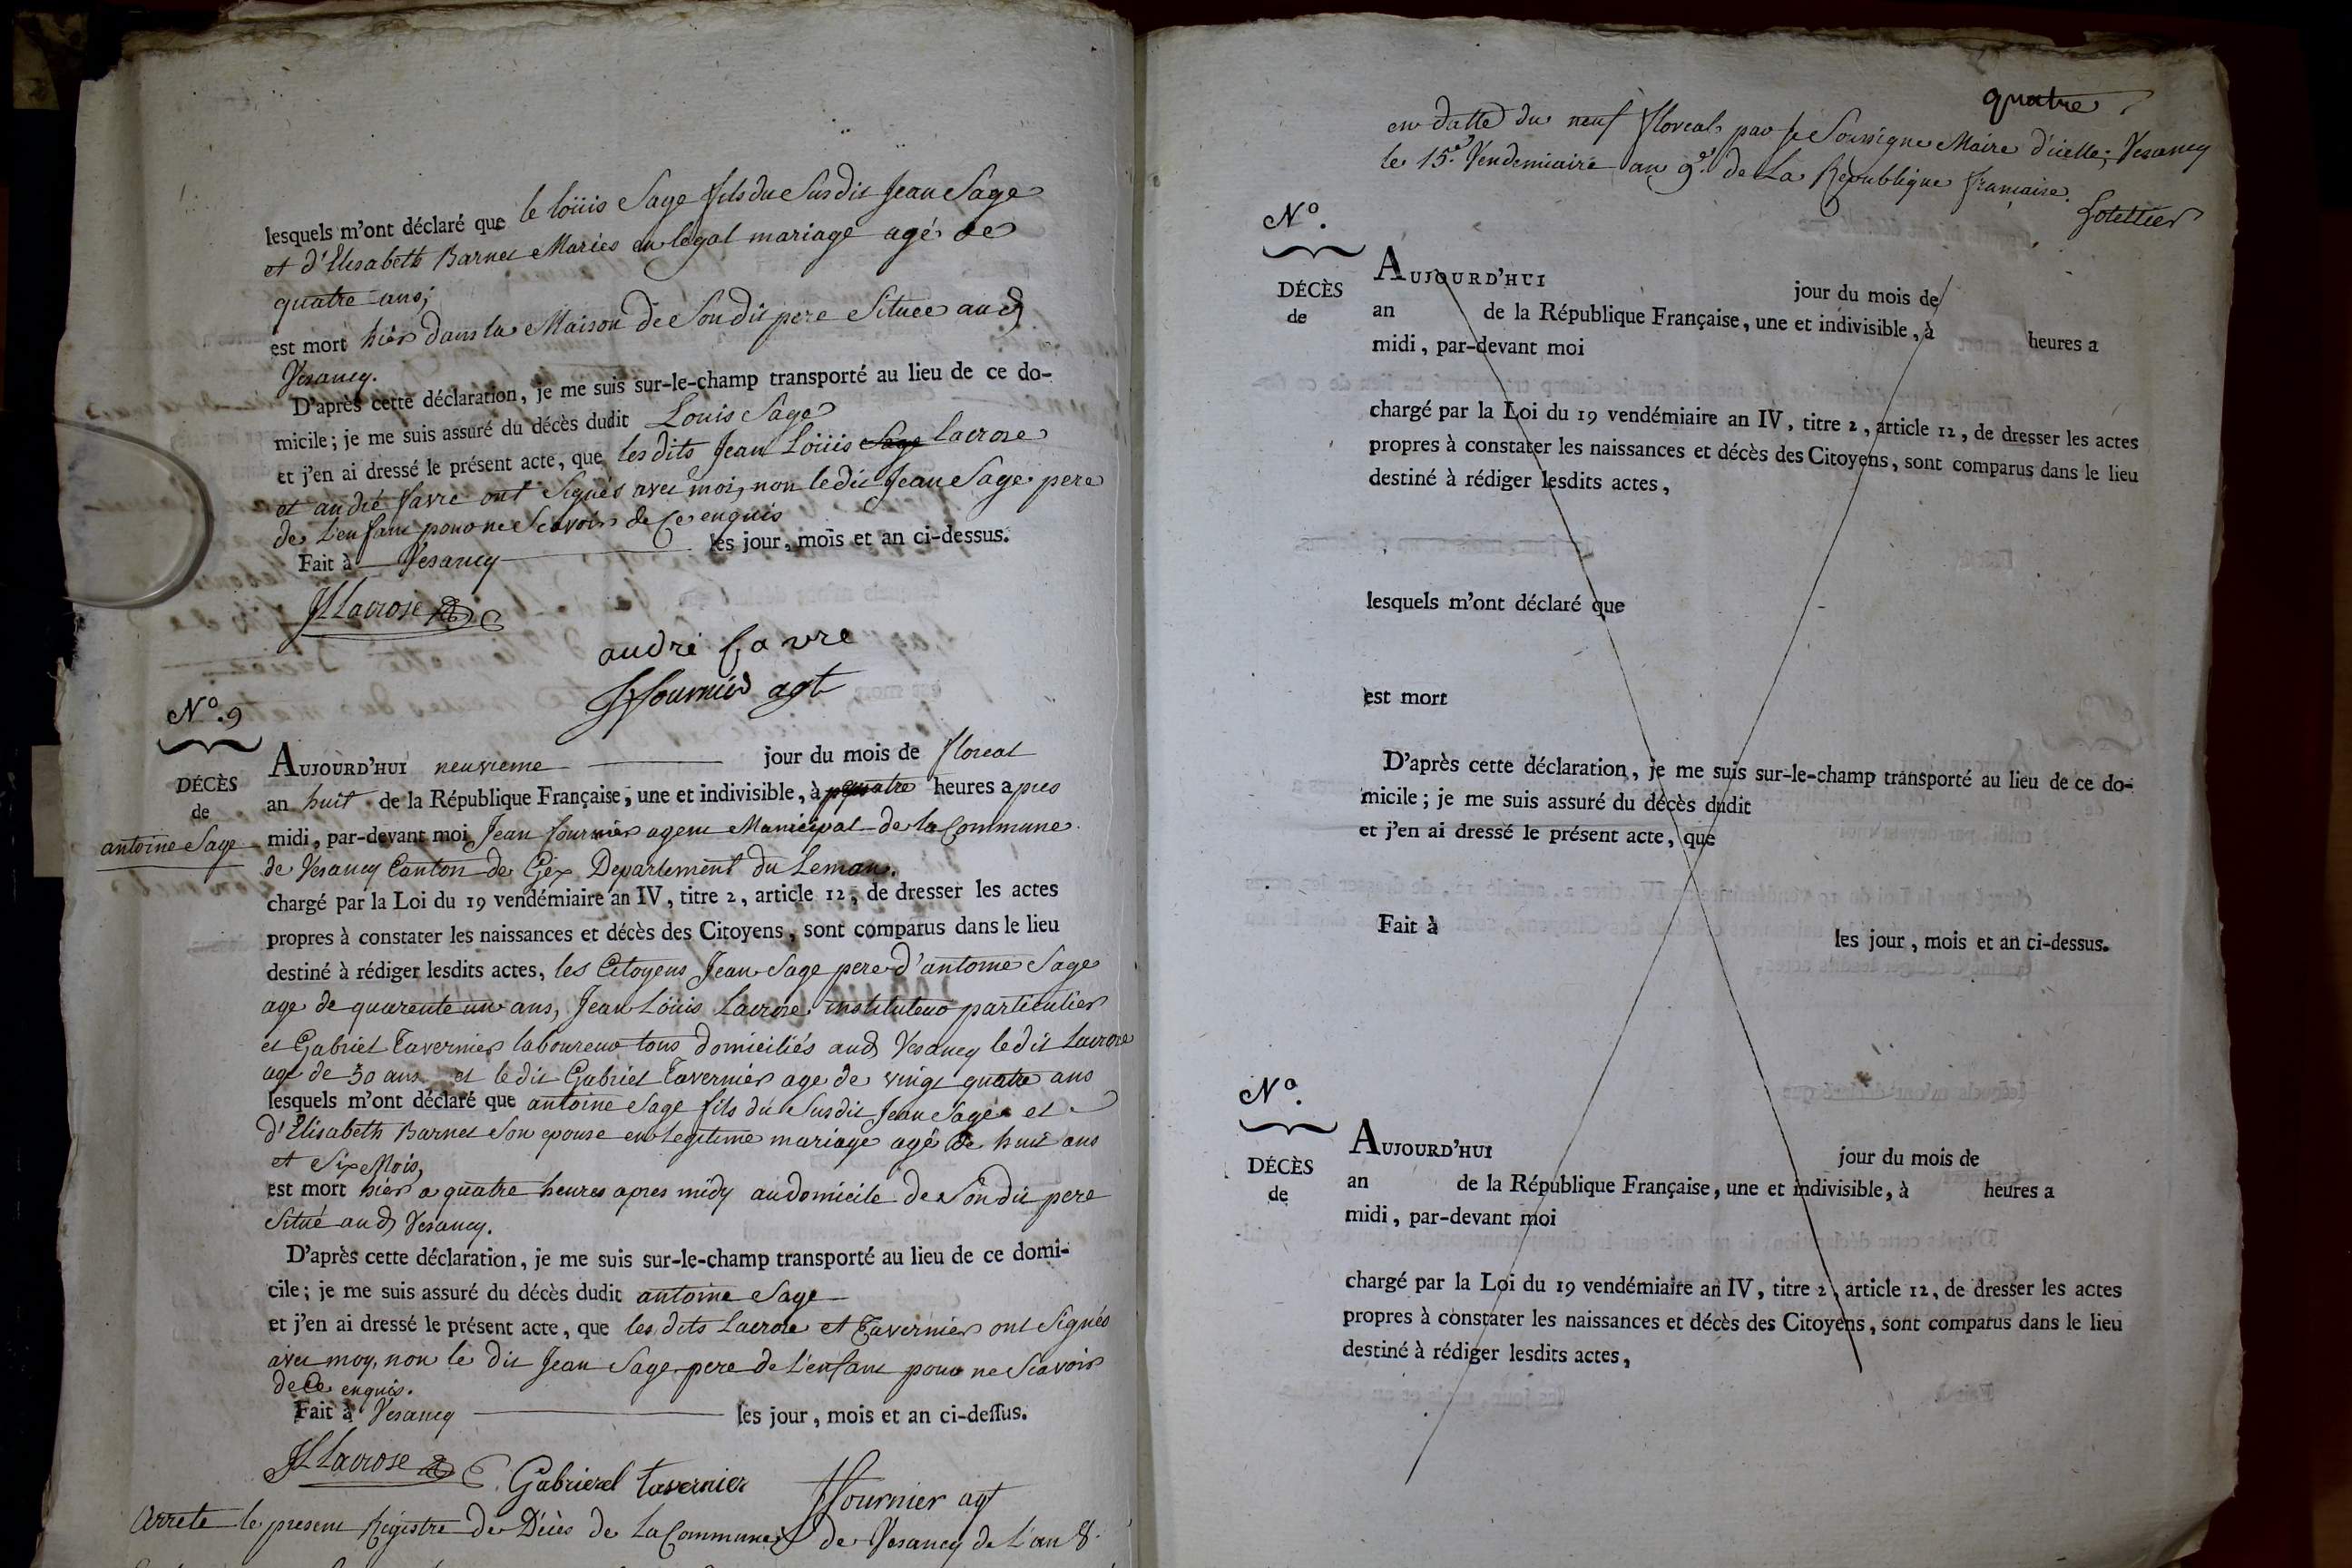 lesquels m'ont déclaré que le loüis Sage fils du Susdit Jean Sage
et d'Elisabeth Barnet Mariés en légal mariage agé de
quatre ans;
est mort hier dans la Maison de Son dit pere Située aud
Vesancy.
D'après cette déclaration, je me suis sur-le-champ transporté au lieu de ce do-
micile; je me suis assuré du décès dudit Louis Sage
et j'en ai dressé le présent acte, que les dits Jean Loüis Sage lacrose
et andré favre ont signés avec moi, non le dit Jean Sage pere
de L'enfant pour ne Scavoir de Ce enquis
Fait à Vesancy les jour, mois et an ci-dessus.
JLLacrose
andré favre
JFournier agt
N°. 9
DÉCÈS
de
antoine Sage
AUJOURD'HUI neuvieme jour du mois de floreal
an huit de la République Française, une et indivisible, à quatre heures apres
midi, par-devant moi Jean fournier agent Municipal de la Commune
de Vesancy Canton de Gex Departement du Leman.
chargé par la Loi du 19 vendémiaire an IV, titre 2, article 12, de dresser les actes
propres à constater les naissances et décès des Citoyens, sont comparus dans le lieu
destiné à rédiger lesdits actes, les Citoyens Jean Sage pere d'antoine Sage
age de quarente un ans, Jean Loüis Lacrose instituteur particulier
et Gabriel Tavernier laboureur tous domiciliés aud Vesancy le dit Lacrose
age de 30 ans et le dit Gabriel Tavernier age de vingt quatre ans
lesquels m'ont déclaré que antoine Sage fils du Susdit Jean Sage et
d'Elisabeth Barnet Son epouse en legitime mariage agé de huit ans
et Six Mois,
est mort hier a quatre heures apres midy au domicile de Son dit pere
Situé aud Vesancy.
D'après cette déclaration, je me suis sur-le-champ transporté au lieu de ce domi-
cile; je me suis assuré du décès dudit antoine Sage
et j'en ai dressé le présent acte, que les dits Lacrose et Tavernier ont Signés
avec moy, non le dit Jean Sage pere de L'enfant pour ne Scavoir
de Ce enquis.
Fait à Vesancy les jour, mois et an ci-dessus.
JLLacrose
Gabrieel tavernier
JFournier agt
Arrete le present Régistre de Décès de La Commune de Vesancy de L'an 8.
quatre
en datte du neuf floreal, par Je Soussigne Maire d'icelle; Vesancy
le 15e. Vendemiaire an 9e. de La Republique française.
Lotellier
N°.
DÉCÈS
de
AUJOURD'HUI jour du mois de
an de la République Française, une et indivisible, à heures a
midi, par-devant moi
chargé par la Loi du 19 vendémiaire an IV, titre 2, article 12, de dresser les actes
propres à constater les naissances et décès des Citoyens, sont comparus dans le lieu
destiné à rédiger lesdits actes,
lesquels m'ont déclaré que
est mort
D'après cette déclaration, je me suis sur-le-champ transporté au lieu de ce do-
micile; je me suis assuré du décès dudit
et j'en ai dressé le présent acte, que
Fait à les jour, mois et an ci-dessus.
N°.
DÉCÈS
de
AUJOURD'HUI jour du mois de
an de la République Française, une et indivisible, à heures a
midi, par-devant moi
chargé par la Loi du 19 vendémiaire an IV, titre 2, article 12, de dresser les actes
propres à constater les naissances et décès des Citoyens, sont comparus dans le lieu
destiné à rédiger lesdits actes,